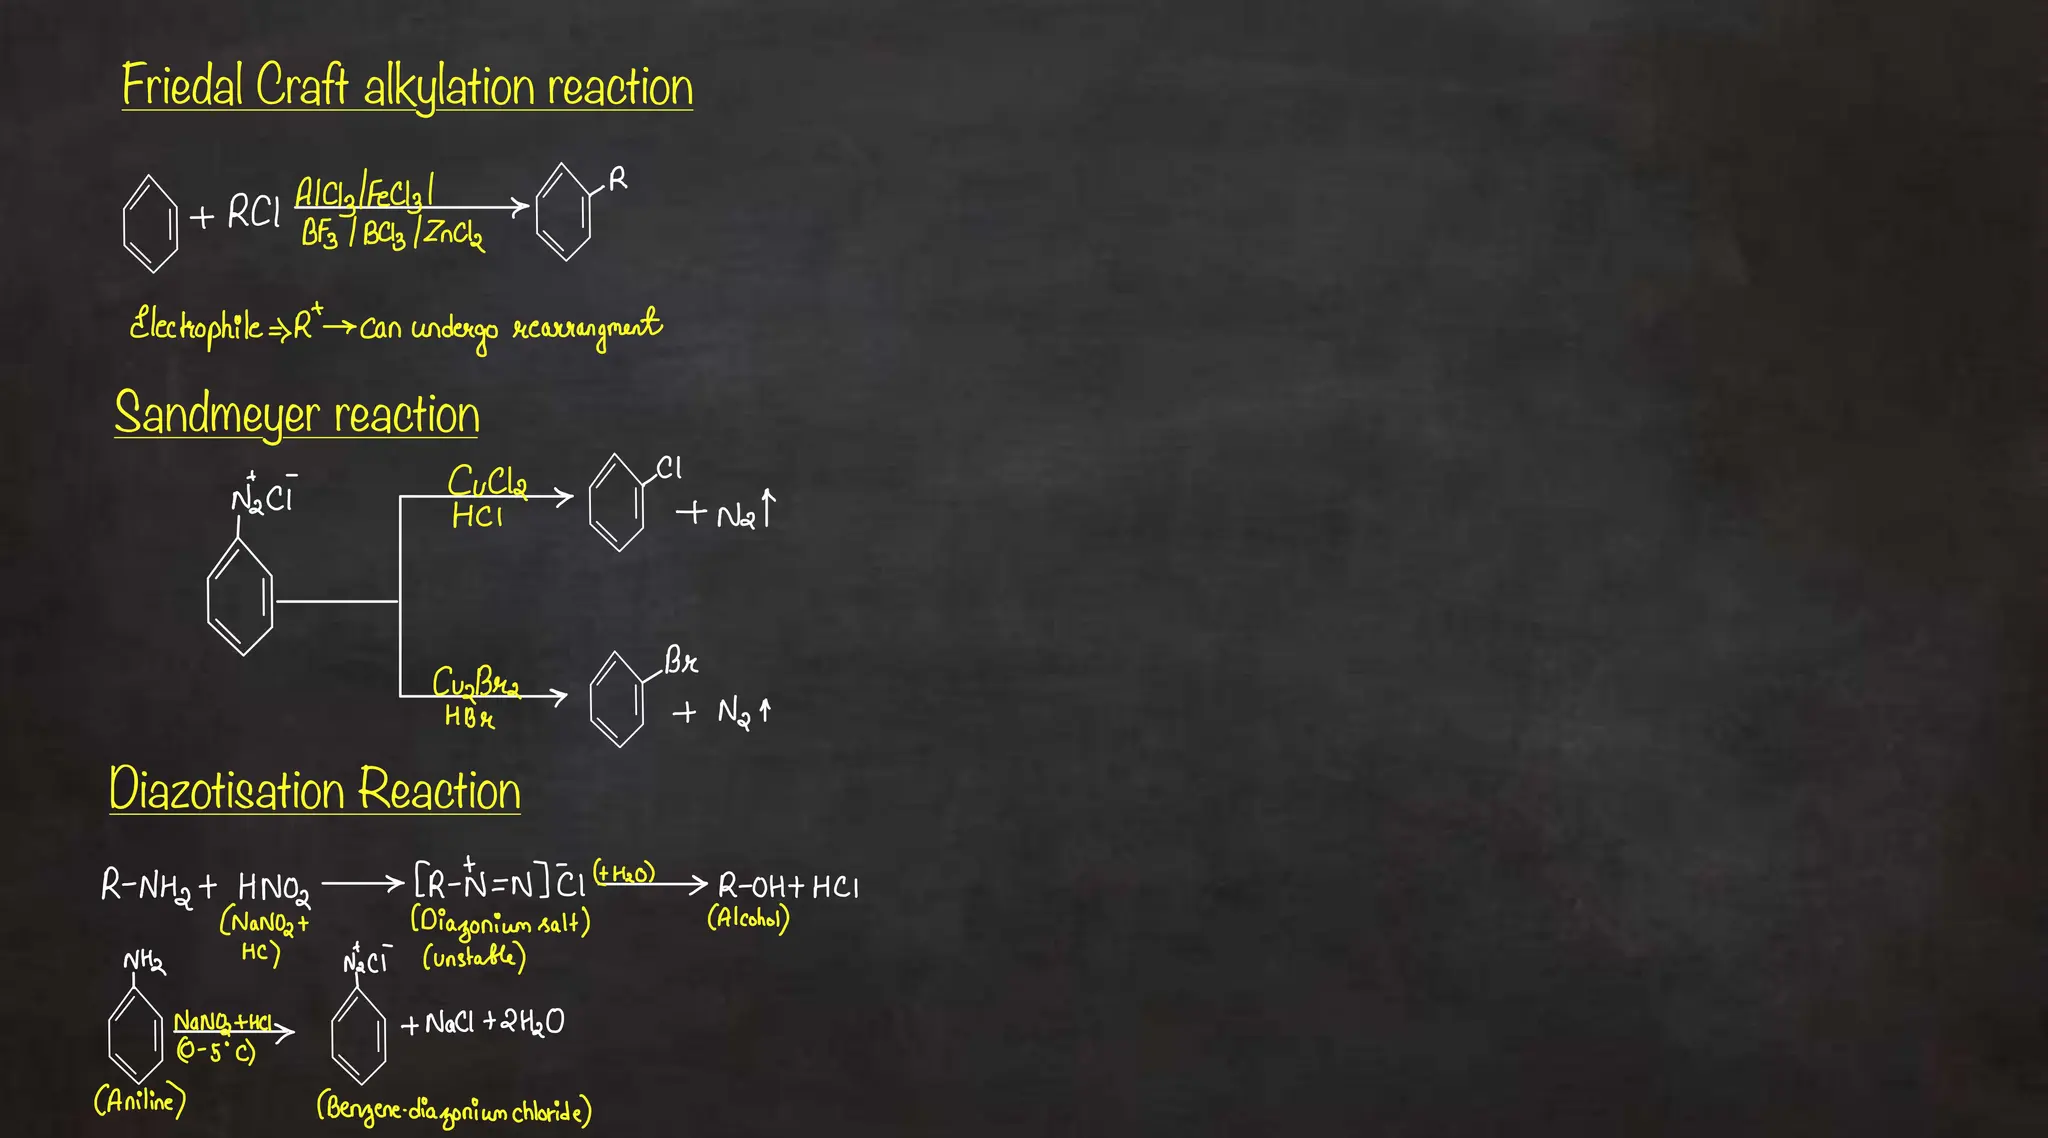 Friedal Craft alkylation reaction
+ RCl AlCl3/FeCl3/ R
BF3/BCl3/ZnCl2
Electrophile ⇒ R+ → Can undergo rearrangment
Sandmeyer reaction
N2+Cl- CuCl2 Cl
HCl + N2↑
Cu2Br2 Br
HBr + N2↑
Diazotisation Reaction
R-NH2 + HNO2 → [R-N+=N]Cl- (+H2O) → R-OH + HCl
(NaNO2+ (Diazonium salt) (Alcohol)
HC) (unstable)
NH2 N2+Cl-
NaNO2+HCl + NaCl + 2H2O
(0-5°C)
(Aniline) (Benzene-diazonium chloride)